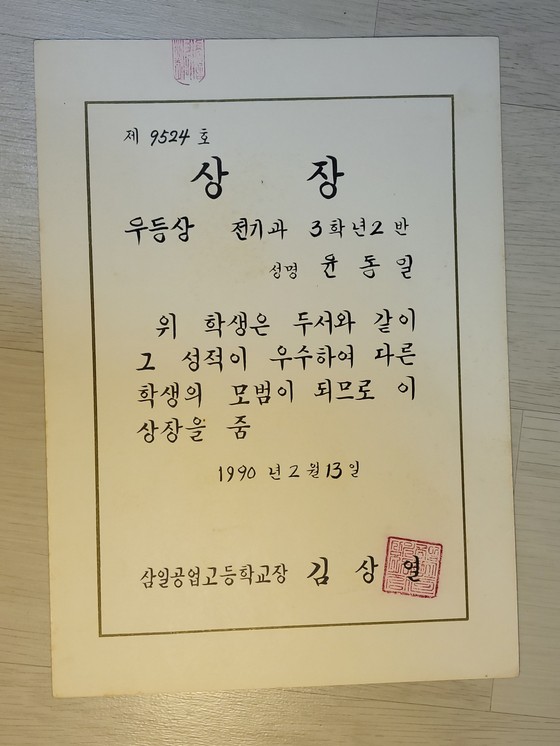 제 9524 호
상 장
우등상 전기과 3학년2반
성명 윤동일
위 학생은 두서와 같이
그 성적이 우수하여 다른
학생의 모범이 되므로 이
상장을 줌
1990 년 2 월 13 일
삼일공업고등학교장 김 상 열